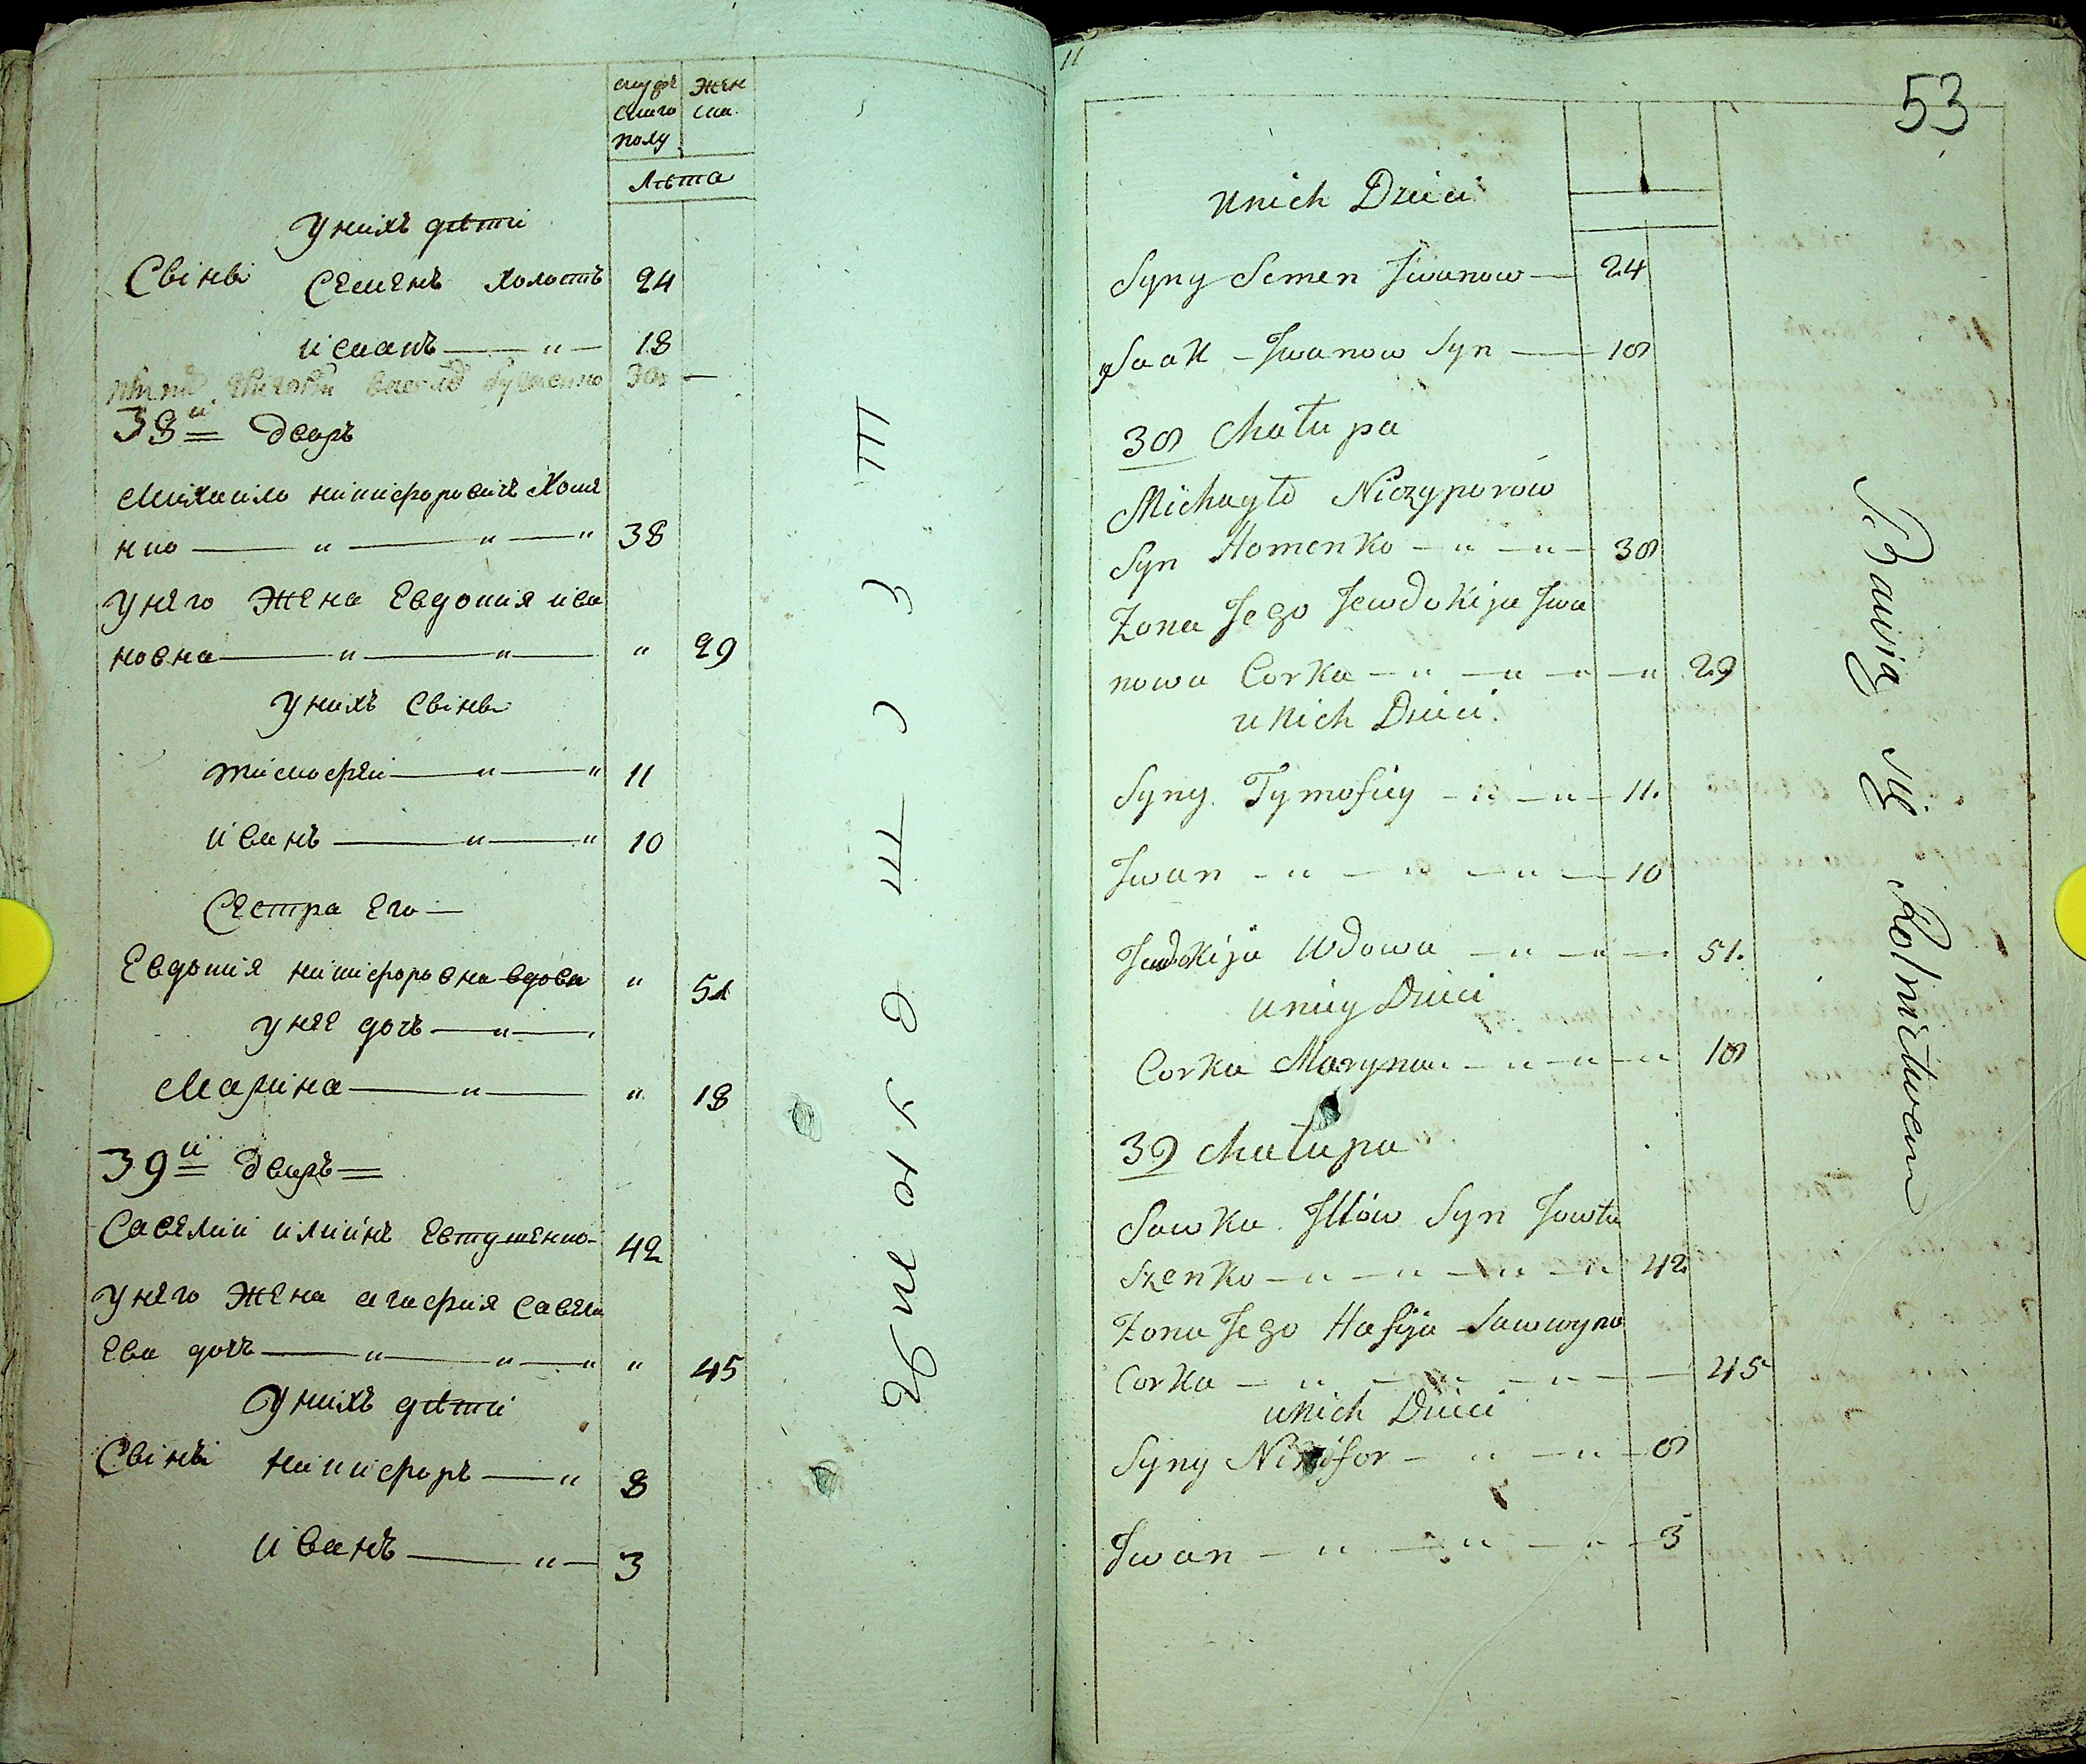 мужескаго полу
женска.
лѣта
У нихъ дѣти
Сыны Семенъ холостъ 24
Исаакъ — „ — 18
38й дворъ
Михаило Никифоровичъ Хоме
нко — „ — „ — „ 38
У него жена Евдокия Ива
новна — „ — „ — „ 29
У нихъ сыны
Тимофѣй — „ — „ 11
Иванъ — „ — „ 10
Сестра его —
Евдокия Никифоровна вдова „ 51
У нее дочь — „ —
Марина — „ — „ 18
39й дворъ
Савелий Илиинъ Евтушенко — 42
У него жена Агафия Савели
ева дочь — „ — „ — „ „ 45
У нихъ дѣти
Сыны Никифоръ — „ 8
Иванъ — „ — 3
11
53
u nich Dzieci
Syny Semen Jwanow — 24
Jsaak — Jwanow Syn — 18
38 Chałupa
Michayło Niczyporow
Syn Homenko — „ — „ — 38
Zona Jego Jewdokija Jwa
nowa Corka — „ — „ — „ — „ 29
u Nich Dzieci.
Syny. Tymofiey — „ — „ — 11.
Jwan — „ — „ — „ — 10
Jewdokija Wdowa — „ — „ — 51.
u niey Dzieci
Corka Maryna — „ — „ — „ 18
39 Chałupa
Sawka Jllow Syn Jowtu
szenko — „ — „ — „ — „ 42
Zona Jego Hafija Sawwyna
Corka — „ — „ — „ — 45
u Nich Dzieci
Syny Nikifor — „ — „ — 8
Jwan — „ — „ — „ — 3
Bawią się Rolnictwem